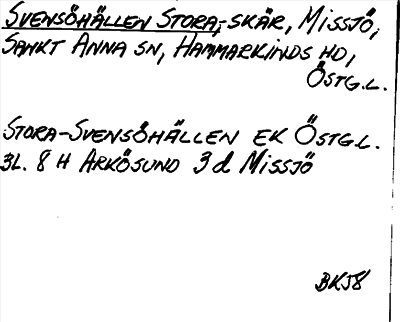 SVENSÖHÄLLEN STORA,-SKÄR, MISSJÖ,
SANKT ANNA SN, HAMMARKINDS HD,
ÖSTG.L.
STORA-SVENSÖHÄLLEN EK ÖSTG.L.
3L. 8 H ARKÖSUND 3 d MISSJÖ
BKJ8